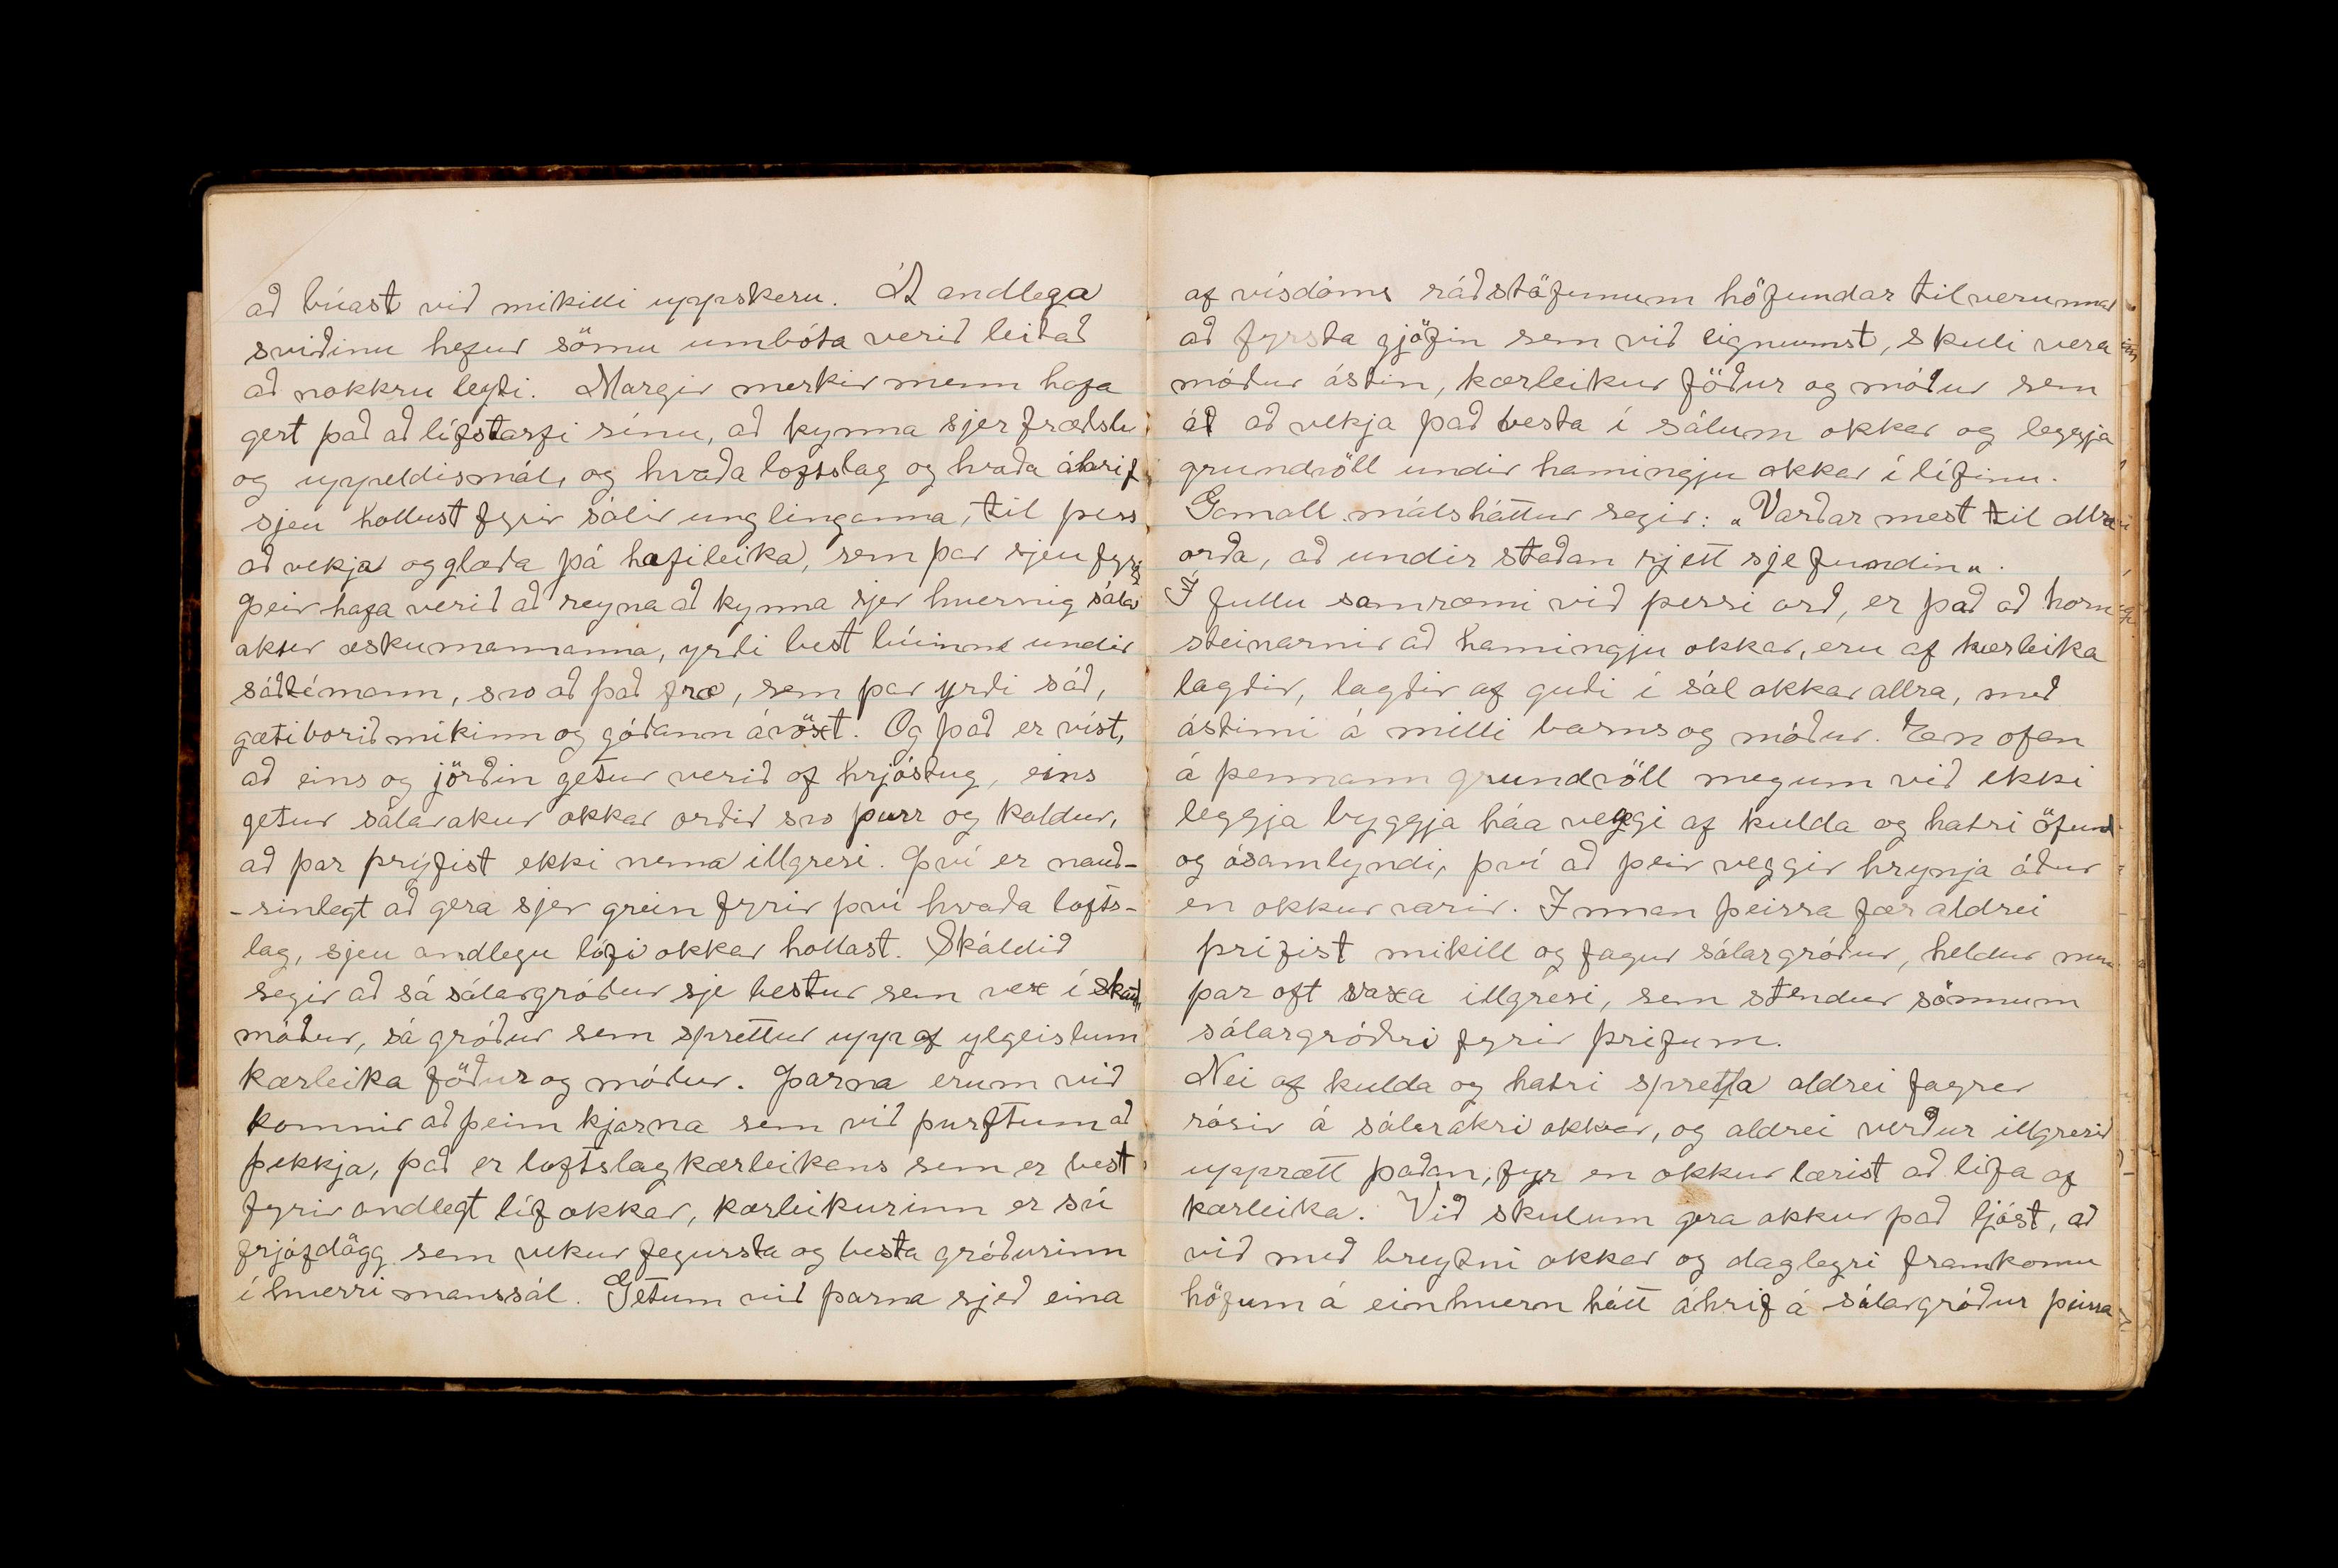 að búast við mikilli uppskeru. Á andlega
sviðinu hefur sömu umbóta verið leitað
að nokkru leyti. Margir merkir menn hafa
gert það að lífstarfi sínu, að kynna sjer fræðslu
og uppeldismál, og hvaða loftslag og hvaða áhrif
sjeu hollust fyrir sálir unglinganna, til þess
að vekja og glæða þá hæfileika, sem þar sjeu fyrir
Þeir hafa verið að reyna að kynna sjer hvernig sálar
akur æskumannanna, yrði best búinn undir
sáðtímann, svo að það fræ, sem þar yrði sáð,
gæti borið mikinn og góðann ávöxt. Og það er víst,
að eins og jörðin getur verið of hrjóstug, eins
getur sálarakur okkar orðið svo þurr og kaldur,
að þar þrýfist ekki nema illgresi. Því er nauð-
-sinlegt að gera sjer grein fyrir því hvaða lofts-
lag, sjeu andlegu lífi okkar hollast. Skáldið
segir að sá sálargróður sje bestur sem vex í skauti
móður, sá gróður sem sprettur upp af ylgeislum
kærleika föður og móður. Þarna erum við
komnir að þeim kjarna sem við þurftum að
þekkja, það er loftslag kærleikans sem er best
fyrir andlegt líf okkar, kærleikurinn er sú
frjófdögg sem vekur fegursta og besta gróðurinn
í hverri manssál. Getum við þarna sjeð eina
af vísdóms ráðstöfunum höfundar tilverunnar
að fyrsta gjöfin sem við eignumst, skuli vera
móður ástin, kærleikur föður og móður sem
á að vekja það besta í sálum okkar og leggja
grundvöll undir hamingju okkar í lífinu.
Gamall málsháttur segir: „Varðar mest til allra
orða, að undir staðan rjett sje fundin„.
Í fullu samræmi við þessi orð, er það að horn
steinarnir að hamingju okkar, eru af kærleika
lagðir, lagðir af guði í sál okkar allra, með
ástinni á milli barns og móður. En ofan
á þennann grundvöll megum við ekki
leggja byggja háa veggi af kulda og hatri öfund
og ósamlyndi, því að þeir veggir hrynja áður
en okkur varir. Innan þeirra fær aldrei
þrifist mikill og fagur sálargróður, heldur mun
þar oft vaxa illgresi, sem stendur sönnum
sálargróðri fyrir þrifum.
Nei af kulda og hatri spretta aldrei fagrar
rósir á sálarakri okkar, og aldrei verður illgresið
upprætt þaðan, fyr en okkur lærist að lifa af
kærleika. Við skulum gera okkur það ljóst, að
við með breytni okkar og daglegri framkomu
höfum á einhvern hátt áhrif á sálargróður þeirra